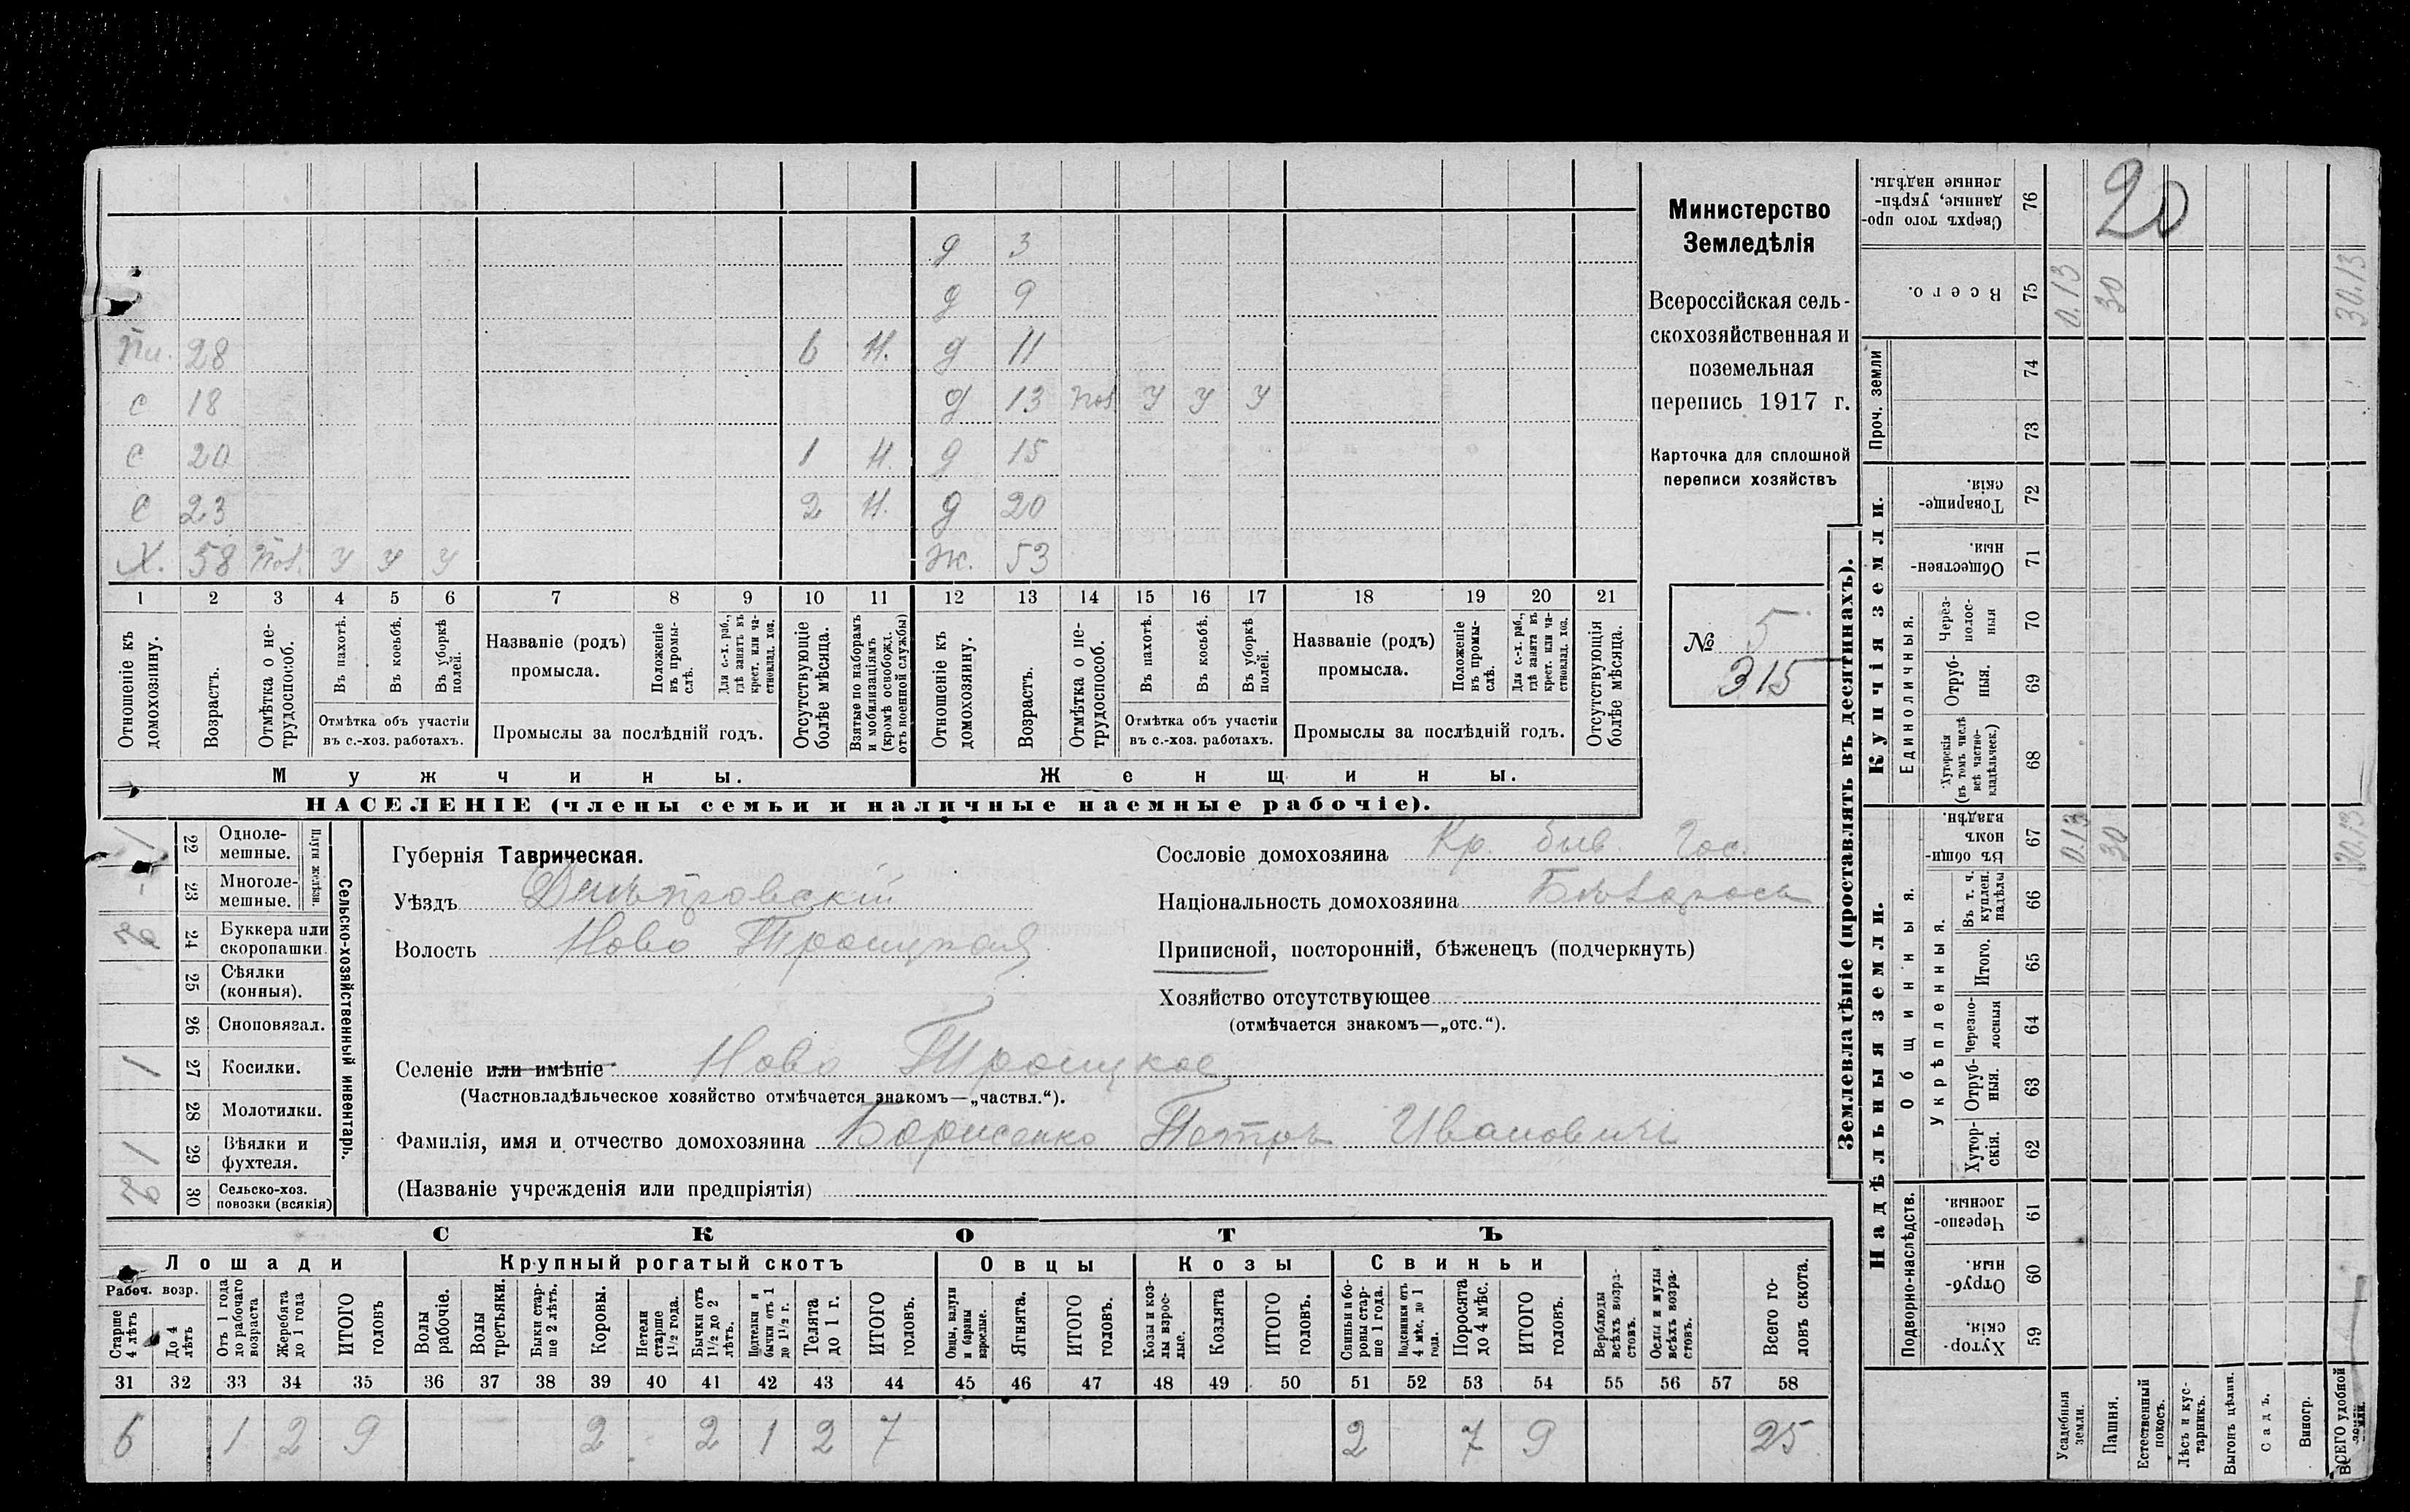 д 3
д 9
Пи. 28 6 Н. д 11
С 18 д 13 Пол. У У У
С 20 1 Н. д 15
С 23 2 Н. д 20
Х. 58 Пол. У У У Ж. 53
1 2 3 4 5 6 7 8 9 10 11 12 13 14 15 16 17 18 19 20 21
Отношеніе къ домохозяину.
Возрастъ.
Отмѣтка о нетрудоспособ.
Въ пахотѣ.
Въ косьбѣ.
Въ уборкѣ полей.
Отмѣтка объ участіи въ с.-хоз. работахъ.
Названіе (родъ) промысла.
Положеніе въ промыслѣ.
Для с.-х. раб., гдѣ занятъ въ крест. или частновлад. хоз.
Промыслы за послѣдній годъ.
Отсутствующіе болѣе мѣсяца.
Взятые по наборамъ и мобилизаціямъ (кромѣ освобожд. отъ военной службы)
Отношеніе къ домохозяину.
Возрастъ.
Отмѣтка о нетрудоспособ.
Въ пахотѣ.
Въ косьбѣ.
Въ уборкѣ полей.
Отмѣтка объ участіи въ с.-хоз. работахъ.
Названіе (родъ) промысла.
Положеніе въ промыслѣ.
Для с.-х. раб., гдѣ занята въ крест. или частновлад. хоз.
Промыслы за послѣдній годъ.
Отсутствующія болѣе мѣсяца.
Мужчины. Женщины.
НАСЕЛЕНІЕ (члены семьи и наличные наемные рабочіе).
Министерство
Земледѣлія
Всероссійская сель-
скохозяйственная и
поземельная
перепись 1917 г.
Карточка для сплошной
переписи хозяйствъ
№ 5
315
Сельско-хозяйственный инвентарь.
Плуги желѣзн.
22 Одноле-
мешные. 1
23 Многоле-
мешные. -
24 Буккера или
скоропашки.
25 Сѣялки
(конныя).
26 Сноповязал.
27 Косилки. 1
28 Молотилки.
29 Вѣялки и
фухтеля. 1
30 Сельско-хоз.
повозки (всякія)
Губернія Таврическая.
Уѣздъ Днѣпровскій
Волость Ново Троицкая
Селеніе или имѣніе Ново Троицкое
(Частновладѣльческое хозяйство отмѣчается знакомъ—„частвл.“).
Фамилія, имя и отчество домохозяина Борисенко Петръ Ивановичъ
(Названіе учрежденія или предпріятія)
Сословіе домохозяина Кр. быв. Гос.
Національность домохозяина
Приписной, посторонній, бѣженецъ (подчеркнуть)
Хозяйство отсутствующее
(отмѣчается знакомъ—„отс.“).
СКОТЪ
Лошади Крупный рогатый скотъ Овцы Козы Свиньи
Рабоч. возр.
Старше 4 лѣтъ
До 4 лѣтъ
Отъ 1 года до рабочаго возраста
Жеребята до 1 года
ИТОГО головъ
Волы рабочіе.
Волы третьяки.
Быки старше 2 лѣтъ.
Коровы.
Нетели старше 1½ года.
Бычки отъ 1½ до 2 лѣтъ.
Нетелки и бычки отъ 1 до 1½ г.
Телята до 1 г.
ИТОГО головъ.
Овцы, валухи и бараны взрослые.
Ягнята.
ИТОГО головъ.
Козы и козлы взрослые.
Козлята
ИТОГО головъ.
Свиньи и боровы старше 1 года.
Подсвинки отъ 4 мѣс. до 1 года.
Поросята до 4 мѣс.
ИТОГО головъ.
Верблюды всѣхъ возрастовъ.
Ослы и мулы всѣхъ возрастовъ.
Всего головъ скота.
31 32 33 34 35 36 37 38 39 40 41 42 43 44 45 46 47 48 49 50 51 52 53 54 55 56 57 58
6 1 2 9 2 2 1 2 7 2 7 9 25
Землевладѣніе (проставлять въ десятинахъ).
Надѣльныя земли. Купчія земли. Проч. земли
Подворно-наслѣдств.
Общинныя.
Укрѣпленныя.
Единоличныя.
Хуторскія. 59
Отрубныя. 60
Черезполосныя. 61
Хуторскія. 62
Отрубныя. 63
Черезполосныя 64
Итого. 65
Въ т. ч. куплен. надѣлы 66
Въ общинномъ владѣн. 67
Хуторскія (въ томъ числѣ всѣ частновладѣльческ.) 68
Отрубныя. 69
Черезполосныя 70
Общественныя. 71
Товарищескія. 72
73
74
Всего. 75
Сверхъ того проданные, укрѣпленные надѣлы. 76
20
0.13 30 30.13
0.13 30 30.13
Усадебныя земли.
Пашня.
Естественный покосъ.
Лѣсъ и кустарникъ.
Выгонъ цѣлин.
Садъ.
Виногр.
ВСЕГО удобной земли.